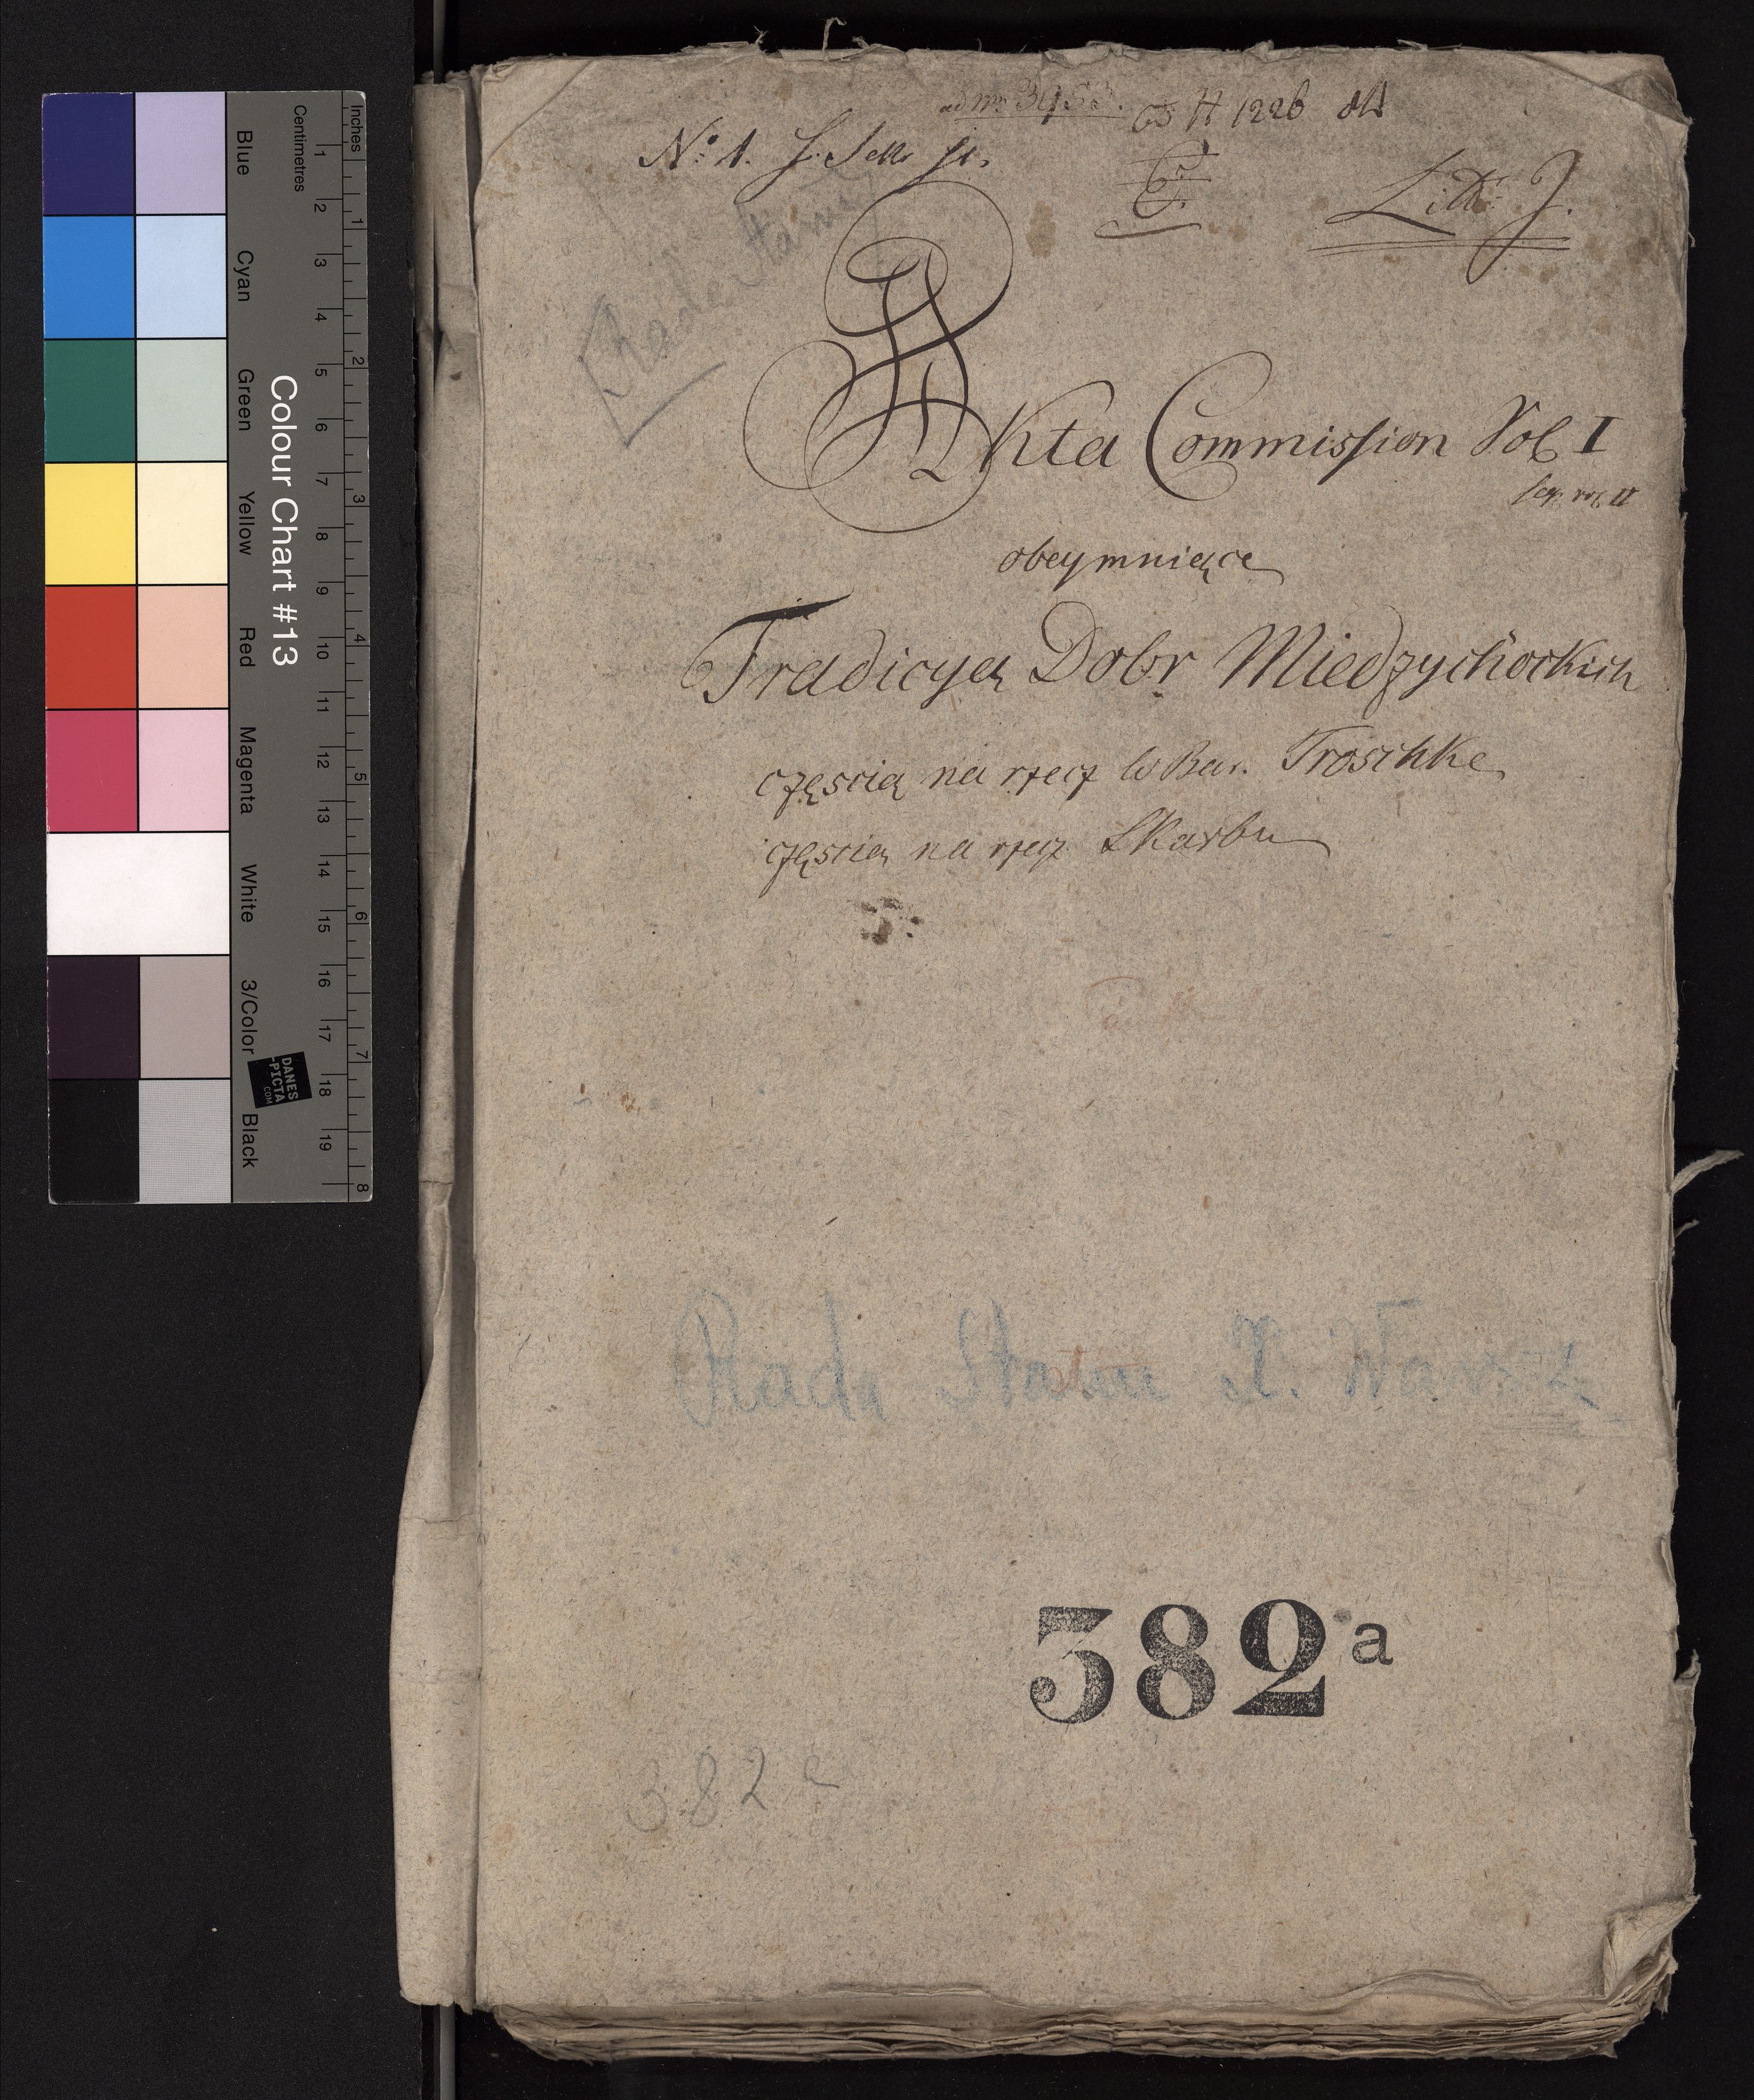 ad nr 3953. 63 H 1226
No: 1.
Litt: J.
Rada Stanu
Akta Commission Vol I
vol. II
obeymuiące
Tradicyą Dobr Miedzychockich
częscią na rzecz W Bar. Troschke
częscią na rzecz Skarbu
Rada Stanu X. Warsz.
382 a
382 a
Colour Chart #13
Blue
Cyan
Green
Yellow
Red
Magenta
White
3/Color
Black
Centimetres
Inches
1 2 3 4 5 6 7 8 9 10 11 12 13 14 15 16 17 18 19
1 2 3 4 5 6 7 8
DANES
-PICTA
.COM